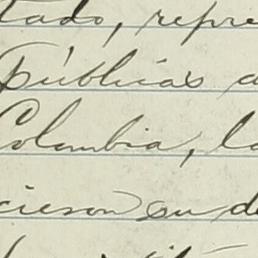 tado, repre
públicas a
Colombia, la
cieron su de